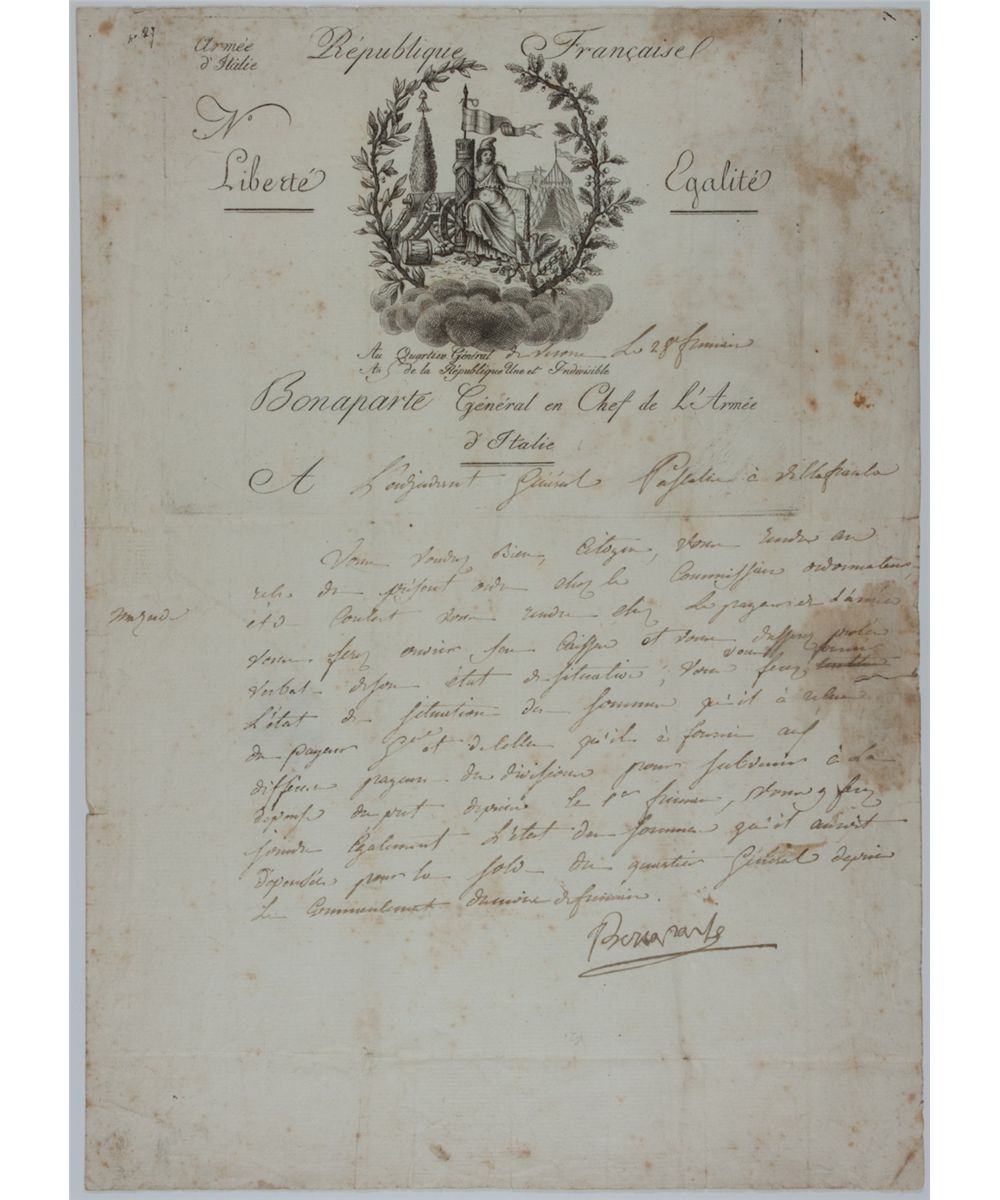 Nº 27
Armée
d'Italie
République Française
Nº
Liberté
Egalité
Au Quartier Général de Verone Le 28 frimaire
An 5 de la République Une et Indivisible
Bonaparte Général en Chef de L'Armée
d'Italie
A L'adjudant Général
Vous voudrez Bien, Citoyen, vous rendre au
reçu du présent ordre chez le Commissaire ordonnateur,
et de vous rendre chez le payeur de L'armée
vous ferez ouvrir sa Caisse et vous dresserez procès
Verbal de son état de situation; vous ferez vous fournir
L'état de situation des sommes qu'il à reçues
du payeur Gal et de celles qu'il à fournies aux
différens payeurs des divisions pour subvenir à La
dépense du pret depuis le 1er frimaire, vous y ferez
joindre également L'état des sommes qu'il auroit
dépensées pour la solde du quartier Général depuis
Le Commencement du mois de frimaire.
Bonaparte